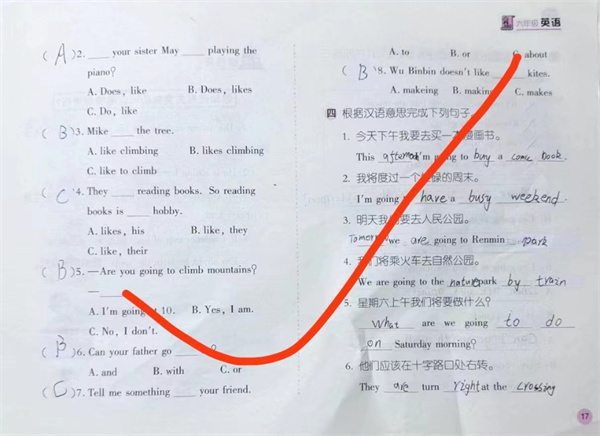 六年级 英语
( A )2. ____ your sister May ____ playing the
piano?
A. Does, like B. Does, likes
C. Do, like
( B )3. Mike ____ the tree.
A. like climbing B. likes climbing
C. like to climb
( C )4. They ____ reading books. So reading
books is ____ hobby.
A. likes, his B. like, they
C. like, their
( B )5. —Are you going to climb mountains?
—____
A. I'm going at 10. B. Yes, I am.
C. No, I don't.
( B )6. Can your father go ____?
A. and B. with C. or
( C )7. Tell me something ____ your friend.
A. to B. or C. about
( B )8. Wu Binbin doesn't like ____ kites.
A. makeing B. making C. makes
四 根据汉语意思完成下列句子。
1. 今天下午我要去买一本漫画书。
This afternoon I'm going to buy a comic book.
2. 我将度过一个忙碌的周末。
I'm going to have a busy weekend.
3. 明天我们要去人民公园。
Tomorrow we are going to Renmin park
4. 我们将乘火车去自然公园。
We are going to the nature park by train
5. 星期六上午我们将要做什么?
What are we going to do
on Saturday morning?
6. 他们应该在十字路口处右转。
They are turn right at the crossing
17